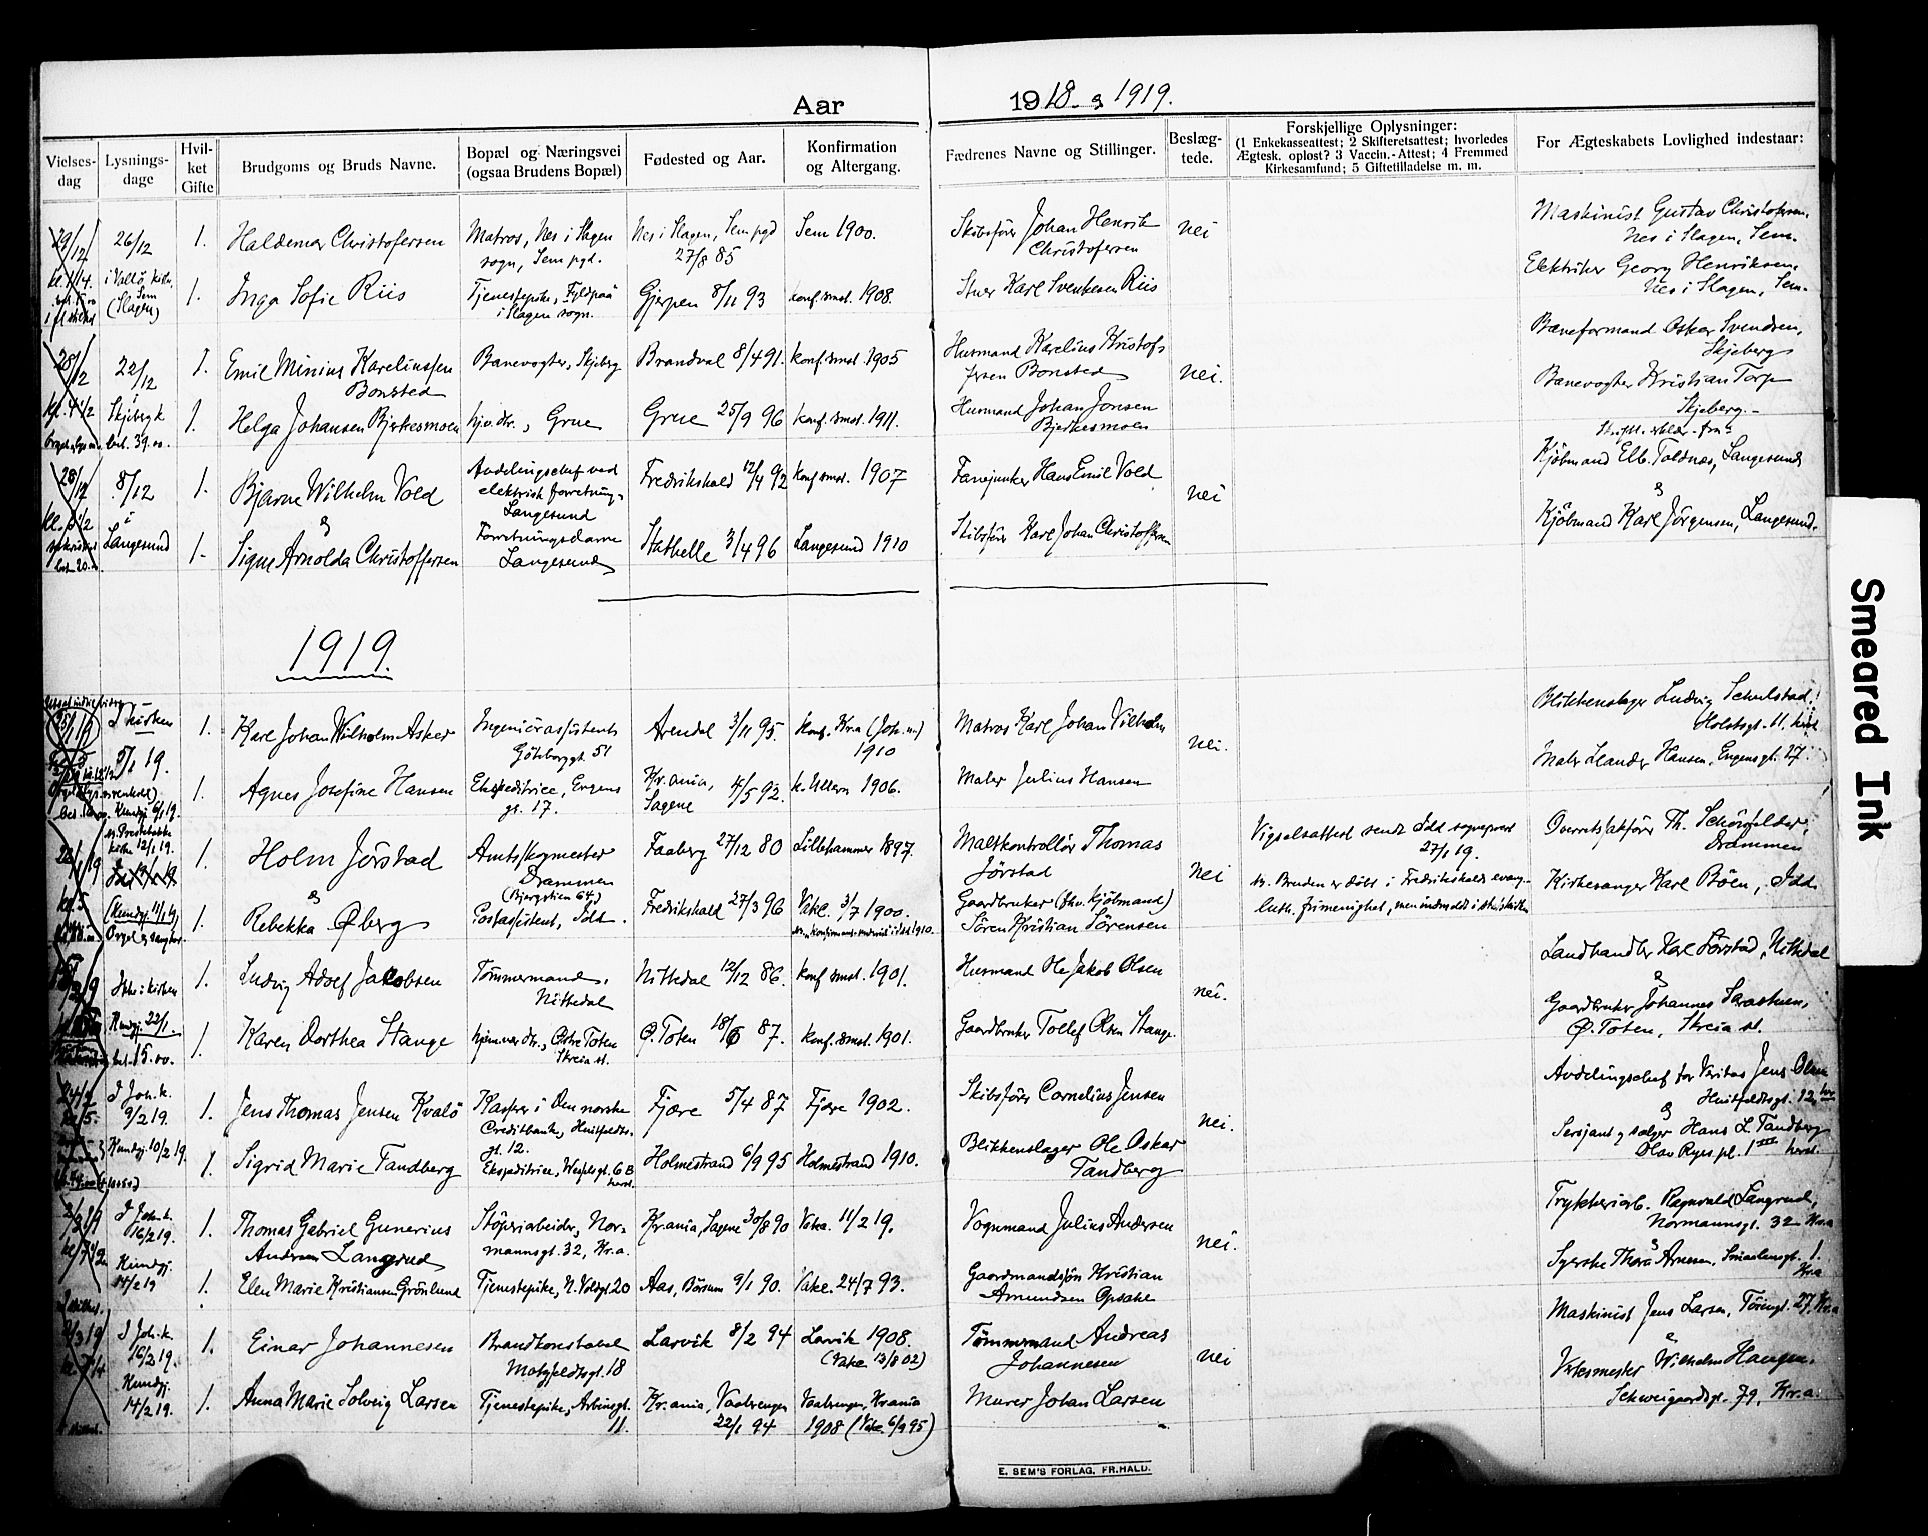 Aar 1918 & 1919.
Vielses-dag
Lysnings-dage
Hvil-ket Gifte
Brudgoms og Bruds Navne.
Bopæl og Næringsvei (ogsaa Brudens Bopæl)
Fødested og Aar.
Konfirmation og Altergang.
Fædrenes Navne og Stillinger.
Beslæg-tede.
Forskjellige Oplysninger:
(1 Enkekasseattest; 2 Skifteretsattest; hvorledes
Ægtesk. opløst? 3 Vaccin.-Attest; 4 Fremmed
Kirkesamfund; 5 Giftetilladelse m. m.
For Ægteskabets Lovlighed indestaar:
29/12 26/12 1. Haldemar Christofersen Matros, Nes i Slagen Nes i Slagen, Sem pgd Sem 1900. Skibsfør Johan Henrik nei Maskinist Gustav Christofersen,
sogn, Sem pgd. 27/8 85 Christofersen Nes i Slagen, Sem.
i Vallø kirke 1. Inga Sofie Riis Gjerpen 8/11 93 konf. smst. 1908. Karl Svenkesen Riis Elektriker Georg Henriksen,
(Slagen) i Slagen sogn. Nes i Slagen, Sem.
28/12 22/12 1. Emil Minius Kareliussen Banevogter, Skjeberg Brandval 8/4 91. konf. smst. 1905 Husmand Karelius Kristof- nei. Baneformand Oskar Svendsen,
Bonsted fersen Bonsted Skjeberg
Skjeberg k. 1. Helga Johansen Bjerkesmoen hjv. dtr., Grue Grue 25/9 96 konf. smst. 1911. Husmand Johan Jonsen Banevogter Kristian Torp
39.00. Bjerkesmoen Skjeberg.-
28/12 8/12 1. Bjarne Wilhelm Vold Avdelingschef ved Fredrikshald 12/4 92 konf smst. 1907 Fanejunker Hans Emil Vold nei Kjøbmand Elb. Toldnæs, Langesund
i & elektrisk forretning, &
Langesund
Langesund 1. Signe Arnolda Christoffersen Forretningsdame Stathelle 3/4 96 Langesund 1910 Skibsfører Karl Johan Christoffersen Kjøbmand Karl Jörgensen, Langesund.
Langesund
1919.
5/1 19. 1. Karl Johan Wilholm Asker Ingeniörassistent Arendal 3/11 95. konf. Kr.a (Joh. m.) Matros Karl Johan Vilholm nei. Blikkenslager Ludvig Schulstad,
Göteborggt. 51 1910 Holstsgt. 11
1. Agnes Josefine Hansen Ekspeditrice, Engens Kr.ania, 4/5 92. k. Ullern 1906. Maler Julius Hansen Maler Leander Hansen, Engensgt. 17.
gt. 17. Sagene
Kundgj. 6/1 19.
22/1 19 kirke 12/1 19. 1. Holm Jörstad Amtsskogmester Faaberg 27/12 80 Lillehammer 1897. Maltkontrollör Thomas nei Vigselsattest sendt Idd sogneprest Overretssakfører Th.
& Drammen Jörstad 27/1 19. Drammen
(Bjergstien 64)
kl. 5 (Kundgj. 11/1 19) 1. Rebekka Øberg Postassistent, Idd. Fredrikshald 27/3 96 Vake. 3/7 1900. Gaardbruker (fhv. kjöbmand) Bruden er döbt i Fredrikshalds evang. Kirkesanger Karl Böen, Idd.
Orgel & sang Sören Kristian Sörensen luth. frimenighet, men
1. Ludvig Adolf Jakobsen Tömmermand, Nittedal 12/12 86. konf. smst. 1901. Husmand Ole Jakob Olsen nei. Landhandler Karl Lörstad, Nittedal
Nittedal &
Kundgj. 22/1. 1. Karen Dorthea Stange hjemmev. dtr., Østre Toten Ø. Toten 18/6 87. konf. smst. 1901. Gaardbruker Tollef Olsen Stange Gaardbruker Johannes
Skreia st. Ø. Toten, Skreia st.
15.00.
24/2 I Joh. k. 1. Jens Thomas Jensen Kvalö Kasserer i Den norske Fjære 5/4 87 Fjære 1902. Skibsförer Cornelius Jensen nei. Avdelingschef for Veritas Jens Olsen
kl. 5. 9/2 19. Creditbank, Huitfeldts- Huitfeldtsgt. 12
gt. 12. &
Kundgj. 10/2 19. 1. Sigrid Marie Tandberg Ekspeditrice, 6 B Holmestrand 6/9 95 Holmestrand 1910. Blikkenslager Ole Oskar Sersjant og sælger Hans L. Tandberg
Tandberg Olav Ryes pl. 1 III
2/3 19 I Joh. k. 1. Thomas Gabriel Gunerius Stöperiarbeider, Nor- Kr.ania, Sagene 30/8 90 Vake. 11/2 19. Vognmand Julius Andersen nei. Trykkeriarb. Ragnvald Langrud,
16/2 19. Andersen Langrud mannsgt. 32, Kr.a. Normannsgt. 32 Kr.a
Kundgj. &
14/2 19 1. Elen Marie Kristiansen Grönlund Tjenestepike, N. Voldgt. 20 Aas, Börsum 9/1 90. Vake. 24/7 93. Gaardmandssön Kristian Syerske Thora Arnesen, Smaalensgt. 1.
Amundsen Opsake Kr.a
9/3 19 I Joh. k. 1. Einar Johannesen Brandkonstabel Larvik 8/2 94 Larvik 1908. Tömmermand Andreas nei Maskinist Jens Larsen, 27, Kr.a
16/2 19. Motzfeldtsgt. 18 (Vake 13/8 02) Johannesen &
Kundgj.
14/2 19. 1. Anna Marie Solveig Larsen Tjenestepike, Arbinsgt. Kr.ania, Vaalerengen Vaalerengen, Kr.ania Murer Johan Larsen Verksmester Wilhelm Haugen,
11. 22/1 94 1908 (Vake. 6/9 95) Schweigaardsgt. 79, Kr.a.
E. SEM'S FORLAG, FR.HALD.
Smeared Ink